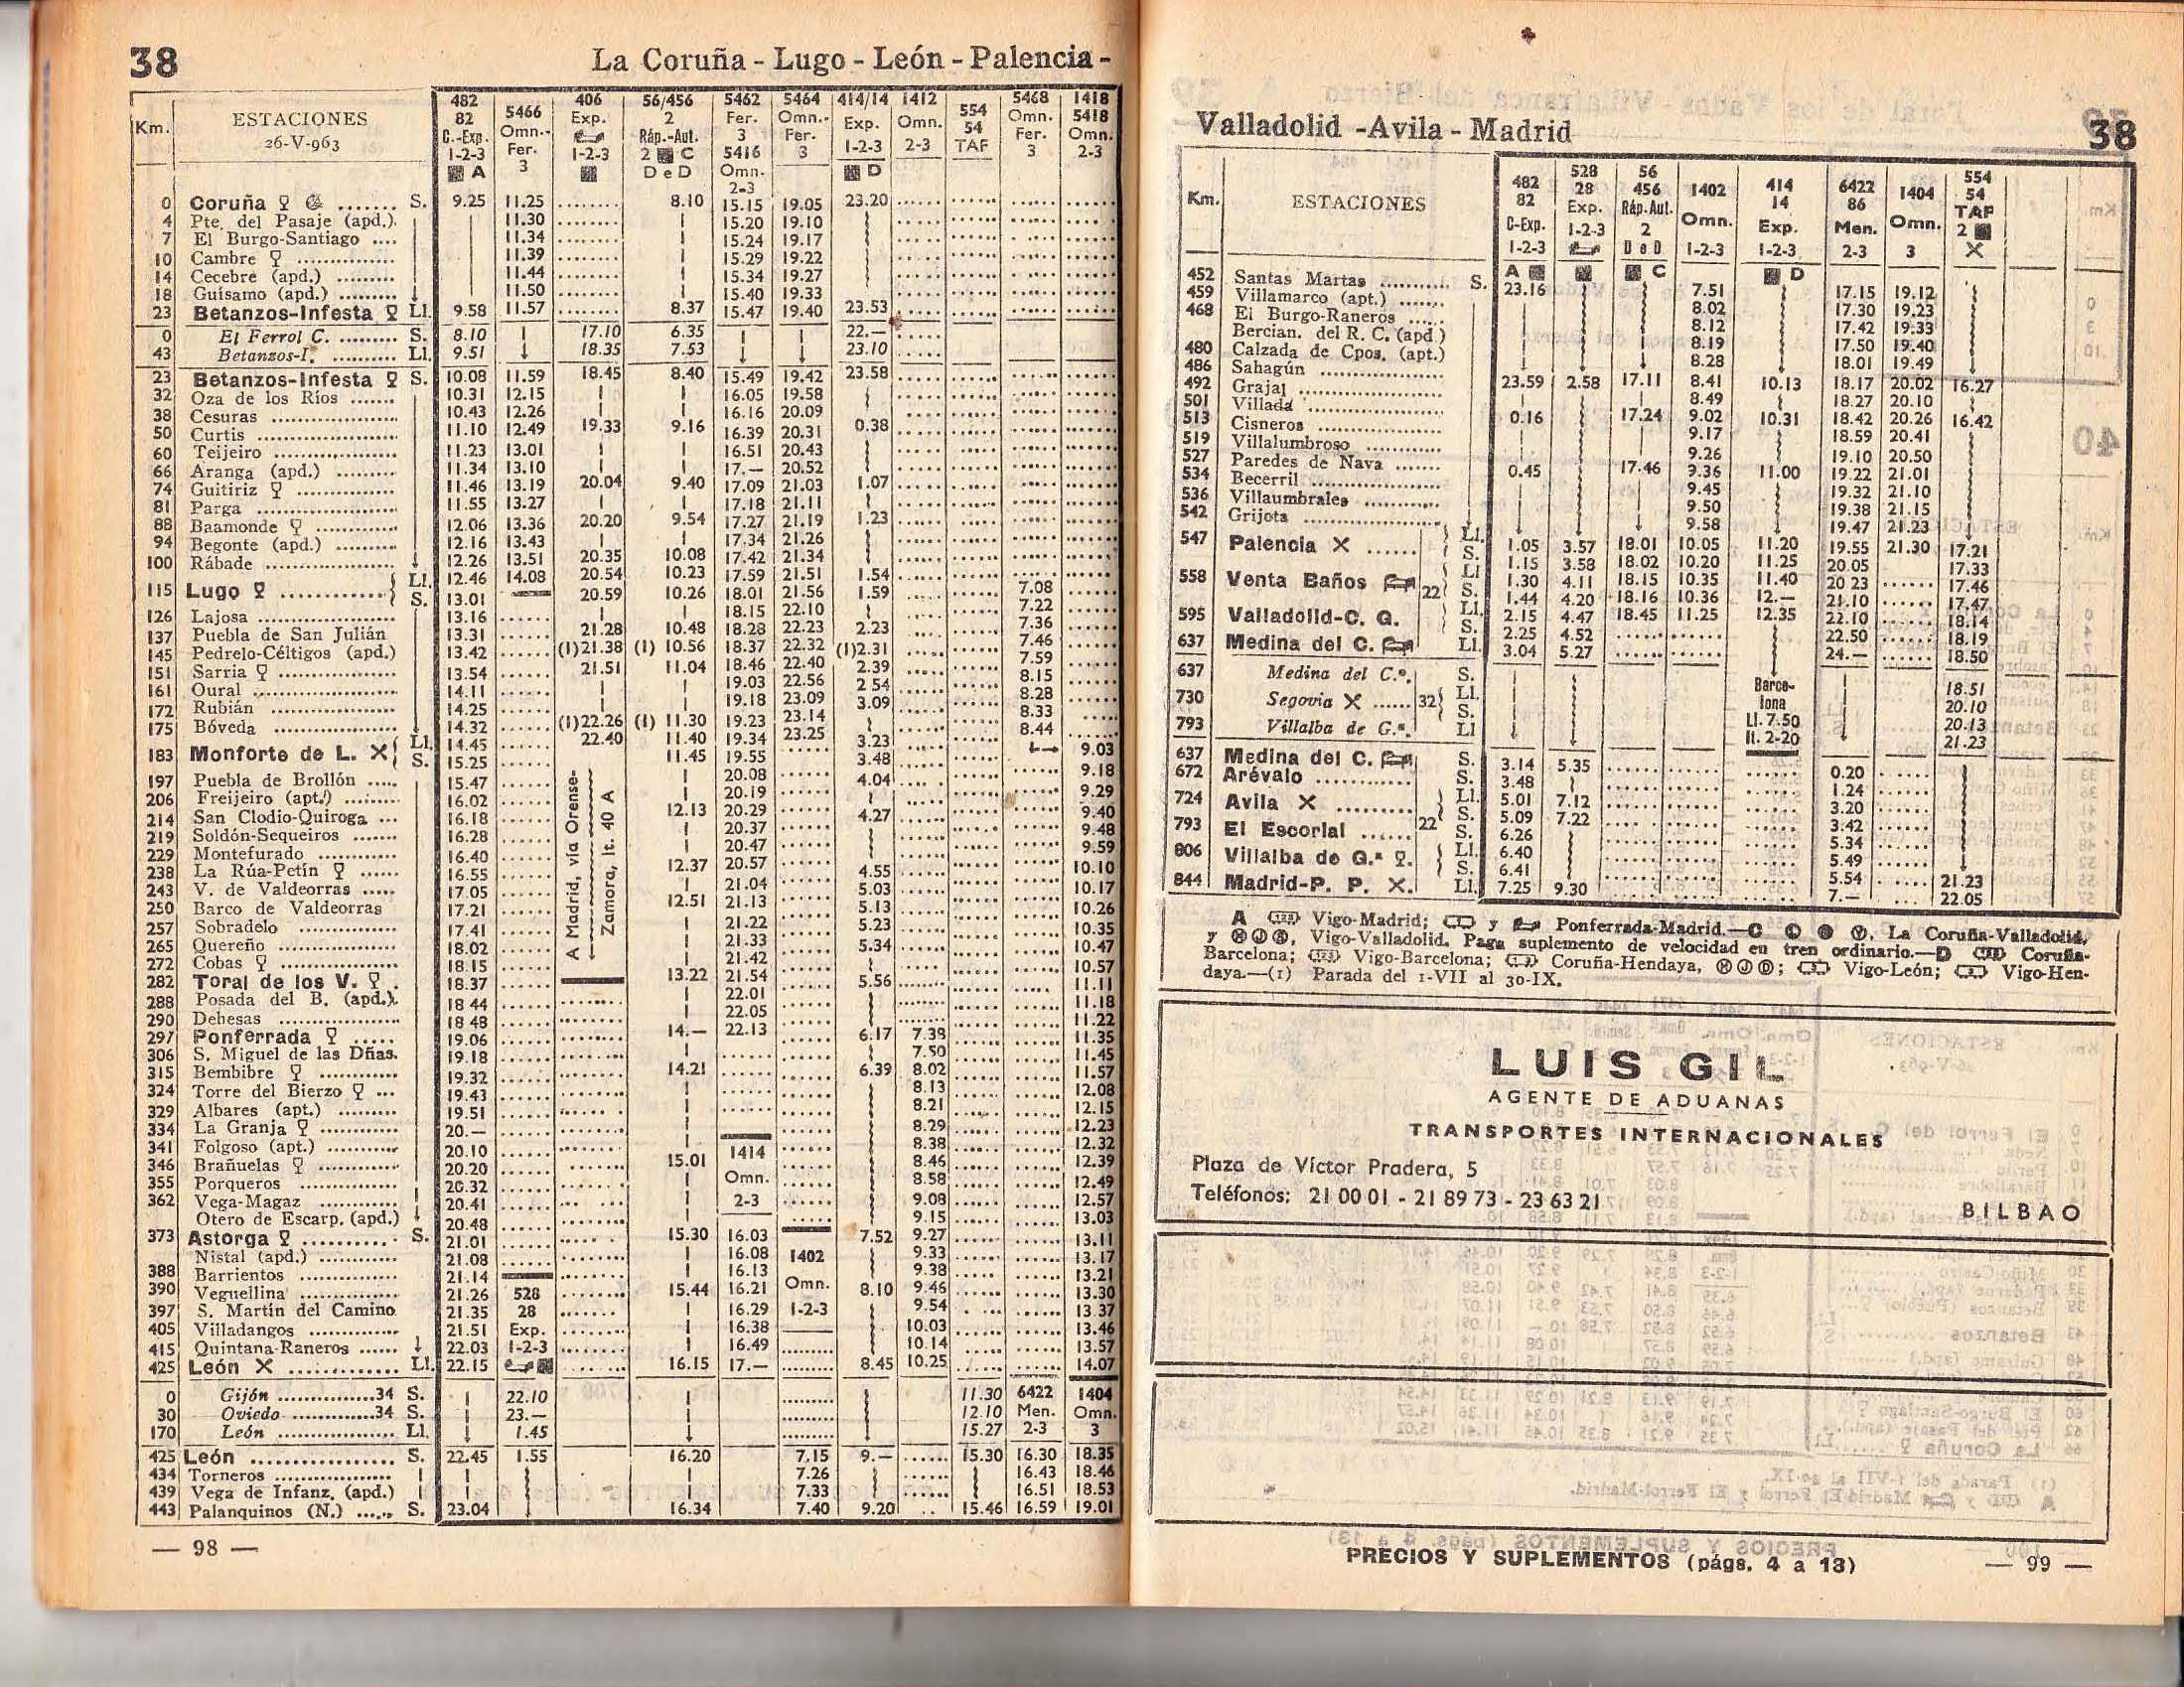 38
La Coruña - Lugo - León - Palencia -
Km. ESTACIONES 26-V-963
482 82 C.-Exp. 1-2-3 A
5466 Omn.- Fer. 3
406 Exp. 1-2-3
56/456 2 Ráp.-Aut. 2 C D e D
5462 Fer. 3 5416 Omn. 2-3
5464 Omn.- Fer. 3
414/14 Exp. 1-2-3 D
1412 Omn. 2-3
554 54 TAF
5468 Omn. Fer. 3
1418 5418 Omn. 2-3
0 Coruña S. 9.25 11.25 8.10 15.15 19.05 23.20
4 Pte. del Pasaje (apd.) 11.30 15.20 19.10
7 El Burgo-Santiago 11.34 15.24 19.17
10 Cambre 11.39 15.29 19.22
14 Cecebre (apd.) 11.44 15.34 19.27
18 Guísamo (apd.) 11.50 15.40 19.33
23 Betanzos-Infesta Ll. 9.58 11.57 8.37 15.47 19.40 23.53
0 El Ferrol C. S. 8.10 17.10 6.35 22.—
43 Betanzos-I. Ll. 9.51 18.35 7.53 23.10
23 Betanzos-Infesta S. 10.08 11.59 18.45 8.40 15.49 19.42 23.58
32 Oza de los Ríos 10.31 12.15 16.05 19.58
38 Cesuras 10.43 12.26 16.16 20.09
50 Curtis 11.10 12.49 19.33 9.16 16.39 20.31 0.38
60 Teijeiro 11.23 13.01 16.51 20.43
66 Aranga (apd.) 11.34 13.10 17.— 20.52
74 Guitiriz 11.46 13.19 20.04 9.40 17.09 21.03 1.07
81 Parga 11.55 13.27 17.18 21.11
88 Baamonde 12.06 13.36 20.20 9.54 17.27 21.19 1.23
94 Begonte (apd.) 12.16 13.43 17.34 21.26
100 Rábade 12.26 13.51 20.35 10.08 17.42 21.34
115 Lugo Ll. 12.46 14.08 20.54 10.23 17.59 21.51 1.54
S. 13.01 20.59 10.26 18.01 21.56 1.59 7.08
126 Lajosa 13.16 18.15 22.10 7.22
137 Puebla de San Julián 13.31 21.28 10.48 18.28 22.23 2.23 7.36
145 Pedrelo-Céltigos (apd.) 13.42 (1)21.38 (1) 10.56 18.37 22.32 (1)2.31 7.46
151 Sarria 13.54 21.51 11.04 18.46 22.40 2.39 7.59
161 Oural 14.11 19.03 22.56 2 54 8.15
172 Rubián 14.25 19.18 23.09 3.09 8.28
175 Bóveda 14.32 (1)22.26 (1) 11.30 19.23 23.14 8.33
183 Monforte de L. Ll. 14.45 22.40 11.40 19.34 23.25 3.23 8.44
S. 15.25 11.45 19.55 3.48 9.03
197 Puebla de Brollón 15.47 20.08 4.04 9.18
206 Freijeiro (apt.) 16.02 20.19 9.29
214 San Clodio-Quiroga 16.18 12.13 20.29 4.27 9.40
219 Soldón-Sequeiros 16.28 20.37 9.48
229 Montefurado 16.40 20.47 9.59
238 La Rúa-Petín 16.55 12.37 20.57 4.55 10.10
243 V. de Valdeorras 17.05 21.04 5.03 10.17
250 Barco de Valdeorras 17.21 12.51 21.13 5.13 10.26
257 Sobradelo 17.41 21.22 5.23 10.35
265 Quereño 18.02 21.33 5.34 10.47
272 Cobas 18.15 21.42 10.57
282 Toral de los V. 18.37 13.22 21.54 5.56 11.11
288 Posada del B. (apd.) 18 44 22.01 11.18
290 Dehesas 18 48 22.05 11.22
297 Ponferrada 19.06 14.— 22.13 6.17 7.39 11.35
306 S. Miguel de las Dñas. 19.18 7.50 11.45
315 Bembibre 19.32 14.21 6.39 8.02 11.57
324 Torre del Bierzo 19.43 8.13 12.08
329 Albares (apt.) 19.51 8.21 12.15
334 La Granja 20.— 8.29 12.23
341 Folgoso (apt.) 20.10 8.38 12.32
346 Brañuelas 20.20 15.01 8.46 12.39
355 Porqueros 20.32 8.58 12.49
362 Vega-Magaz 20.41 9.08 12.57
Otero de Escarp. (apd.) 20.48 9.15 13.03
A Madrid, vía Orense-Zamora, It. 40 A
1414 Omn. 2-3
373 Astorga S. 21.01 15.30 16.03 7.52 9.27 13.11
Nistal (apd.) 21.08 16.08 9.33 13.17
388 Barrientos 21.14 16.13 9.38 13.21
390 Veguellina 21.26 15.44 16.21 8.10 9.46 13.30
397 S. Martín del Camino 21.35 16.29 9.54 13 37
405 Villadangos 21.51 16.38 10.03 13.46
415 Quintana-Raneros 22.03 16.49 10.14 13.57
425 León Ll. 22.15 16.15 17.— 8.45 10.25 14.07
528 28 Exp. 1-2-3
1402 Omn. 1-2-3
0 Gijón 34 S. 22.10 11.30
30 Oviedo 34 S. 23.— 12.10
170 León Ll. 1.45 15.27
6422 Men. 2-3
1404 Omn. 3
425 León S. 22.45 1.55 16.20 7.15 9.— 15.30 16.30 18.35
434 Torneros 7.26 16.43 18.46
439 Vega de Infanz. (apd.) 7.33 16.51 18.53
443 Palanquinos (N.) S. 23.04 16.34 7.40 9.20 15.46 16.59 19.01
— 98 —
Valladolid -Avila - Madrid
38
Km. ESTACIONES
482 82 C-Exp. 1-2-3 A
528 28 Exp. 1-2-3
56 456 Ráp.-Aut. 2 D e D C
1402 Omn. 1-2-3
414 14 Exp. 1-2-3 D
6422 86 Men. 2-3
1404 Omn. 3
554 54 TAF 2
452 Santas Martas S. 23.16 7.51 17.15 19.12
459 Villamarco (apt.) 8.02 17.30 19.23
468 El Burgo-Raneros 8.12 17.42 19.33
Bercian. del R. C. (apd) 8.19 17.50 19.40
480 Calzada de Cpos. (apt.) 8.28 18.01 19.49
486 Sahagún 23.59 2.58 17.11 8.41 10.13 18.17 20.02 16.27
492 Grajal 8.49 18.27 20.10
501 Villada 0.16 17.24 9.02 10.31 18.42 20.26 16.42
513 Cisneros 9.17 18.59 20.41
519 Villalumbroso 9.26 19.10 20.50
527 Paredes de Nava 0.45 17.46 9.36 11.00 19.22 21.01
534 Becerril 9.45 19.32 21.10
536 Villaumbrales 9.50 19.38 21.15
542 Grijota 9.58 19.47 21.23
547 Palencia Ll. 1.05 3.57 18.01 10.05 11.20 19.55 21.30 17.21
S. 1.15 3.58 18.02 10.20 11.25 20.05 17.33
558 Venta Baños 22 Ll 1.30 4.11 18.15 10.35 11.40 20 23 17.46
S. 1.44 4.20 18.16 10.36 12.— 21.10 17.47
595 Valladolid-C. G. Ll. 2.15 4.47 18.45 11.25 12.35 22.10 18.14
S. 2.25 4.52 22.50 18.19
637 Medina del C. Ll. 3.04 5.27 24.— 18.50
637 Medina del C.º. S. 18.51
730 Segovia 32 Ll. 20.10
S. 20.13
793 Villalba de G.ª. Ll 21.23
Barcelona Ll. 7.50 It. 2-20
637 Medina del C. S. 3.14 5.35 0.20
672 Arévalo S. 3.48 1.24
724 Avila Ll. 5.01 7.12 3.20
S. 5.09 7.22 3.42
793 El Escorial 22 S. 6.26 5.34
806 Villalba de G.ª Ll. 6.40 5.49
S. 6.41 5.54 21.23
844 Madrid-P. P. Ll. 7.25 9.30 7.— 22.05
A Vigo-Madrid; y Ponferrada-Madrid.—C La Coruña-Valladolid,
y Vigo-Valladolid. Paga suplemento de velocidad en tren ordinario.—D Coruña-
Barcelona; Vigo-Barcelona; Coruña-Hendaya, Vigo-León; Vigo-Hen-
daya.—(1) Parada del 1-VII al 30-IX.
LUIS GIL
AGENTE DE ADUANAS
TRANSPORTES INTERNACIONALES
Plaza de Víctor Pradera, 5
Teléfonos: 21 00 01 - 21 89 73 - 23 63 21
BILBAO
PRECIOS Y SUPLEMENTOS (págs. 4 a 13)
— 99 —